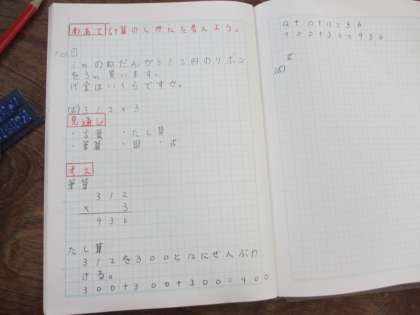 めあて 計算のしかたを考えよう。
1mのねだんが312円のリボン
を3m買います。
代金はいくらですか。
式)312×3
見通し
・言葉 ・たし算
・筆算 ・図 ・式
考え
筆算
312
× 3
936
たし算
312を300と12にぜんぶわ
ける。
300+300+300=900
12+12+12=36
900+36=936
図
式)